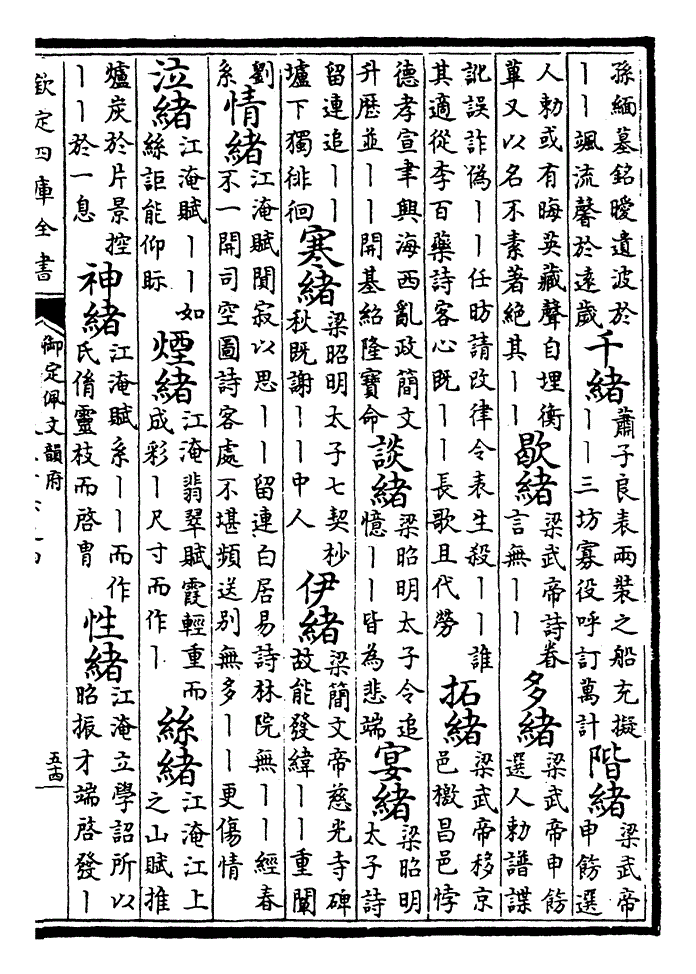 孫緬墓銘曖遺波於
丨丨颯流馨於遠歲
千緒
蕭子良表兩裝之船充擬
丨丨三坊寡役呼訂萬計
階緒
梁武帝
申飭選
人勅或有晦英藏聲自埋衡
蓽又以名不素著絕其丨丨
歇緒
梁武帝詩春
言無丨丨
多緒
梁武帝申飭
選人勅譜諜
訛誤詐僞丨丨任昉請改律令表生殺丨丨誰
其適從李百藥詩客心既丨丨長歌且代勞
拓緒
梁武帝移京
邑檄昌邑悖
德孝宣聿興海西亂政簡文
升歷並丨丨開基紹隆寶命
談緒
梁昭明太子令追
憶丨丨皆為悲端
宴緒
梁昭明
太子詩
留連追丨丨
壚下獨徘徊
寒緒
梁昭明太子七契杪
秋既謝丨丨中人
伊緒
梁簡文帝慈光寺碑
故能發緯丨丨重闡
劉
系
情緒
江淹賦聞寂以思丨丨留連白居易詩林院無丨丨經春
不一開司空圖詩客處不堪頻送別無多丨丨更傷情
泣緒
江淹賦丨丨如
絲詎能仰眎
煙緒
江淹翡翠賦霞輕重而
成彩丨尺寸而作丨
絲緒
江淹江上
之山賦推
爐炭於片景控
丨丨於一息
神緒
江淹賦系丨丨而作
氏脩靈枝而啓冑
性緒
江淹立學詔所以
昭振才端啓發丨
欽定四庫全書
御定佩文韻府
五十四